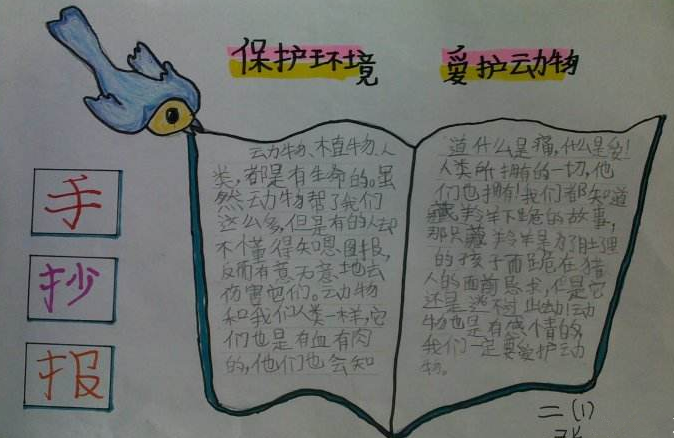 保护环境
爱护动物
手
抄
报
动物、植物、人
类，都是有生命的。虽
然动物帮了我们
这么多，但是有的人却
不懂得知恩图报，
反而有意无意地去
伤害它们。动物
和我们人类一样，它
们也是有血有肉
的，他们也会知
道什么是痛，什么是爱！
人类所拥有的一切，他
们也拥有！我们都知道
藏羚羊下跪的故事，
那只藏羚羊是为了肚里
的孩子而跪在猎
人的面前恳求，但是它
还是逃不过此劫动
物也是有感情的，
我们一定要爱护动
物。
二（1）